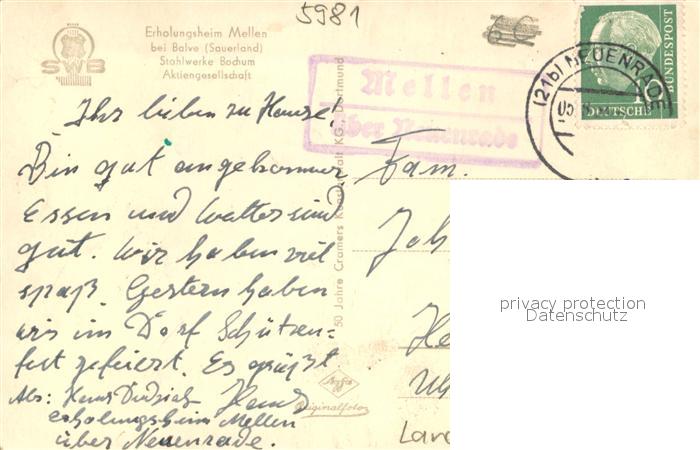 5981
Erholungsheim Mellen
bei Balve (Sauerland)
Stahlwerke Bochum
Aktiengesellschaft
SWB
Mellen
über Neuenrade
(21b) NEUENRADE
DEUTSCHE
BUNDESPOST
Ihr lieben zu Hause!
Bin gut angekommen
Essen und Wetter sind
gut. Wir haben viel
spaß. Gestern haben
wir im Dorf Schützen=
fest gefeiert. Es grüßt
Hans
Abs: Hans
erholungsheim Mellen
über Neuenrade.
50 Jahre Cramers Kunstanstalt KG. Dortmund
Agfa
Originalfoto
Fam.
Joh
He
Land
privacy protection
Datenschutz